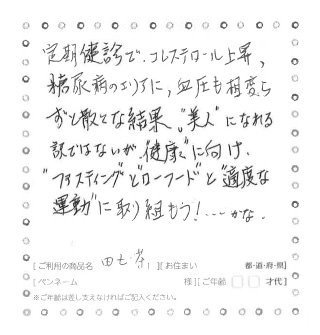 定期健診で、コレステロール上昇、
糖尿病のエリアに、血圧も相変ら
ずと散々な結果、"美人"になれる
訳ではないが"健康"に向け、
"ファスティング"と"ローフード"と"適度な
運動"に取り組もう!…かな。
[ご利用の商品名 田七茶 ][お住まい 都・道・府・県]
[ペンネーム 様][ご年齢 才代]
※ご年齢は差し支えなければご記入ください。